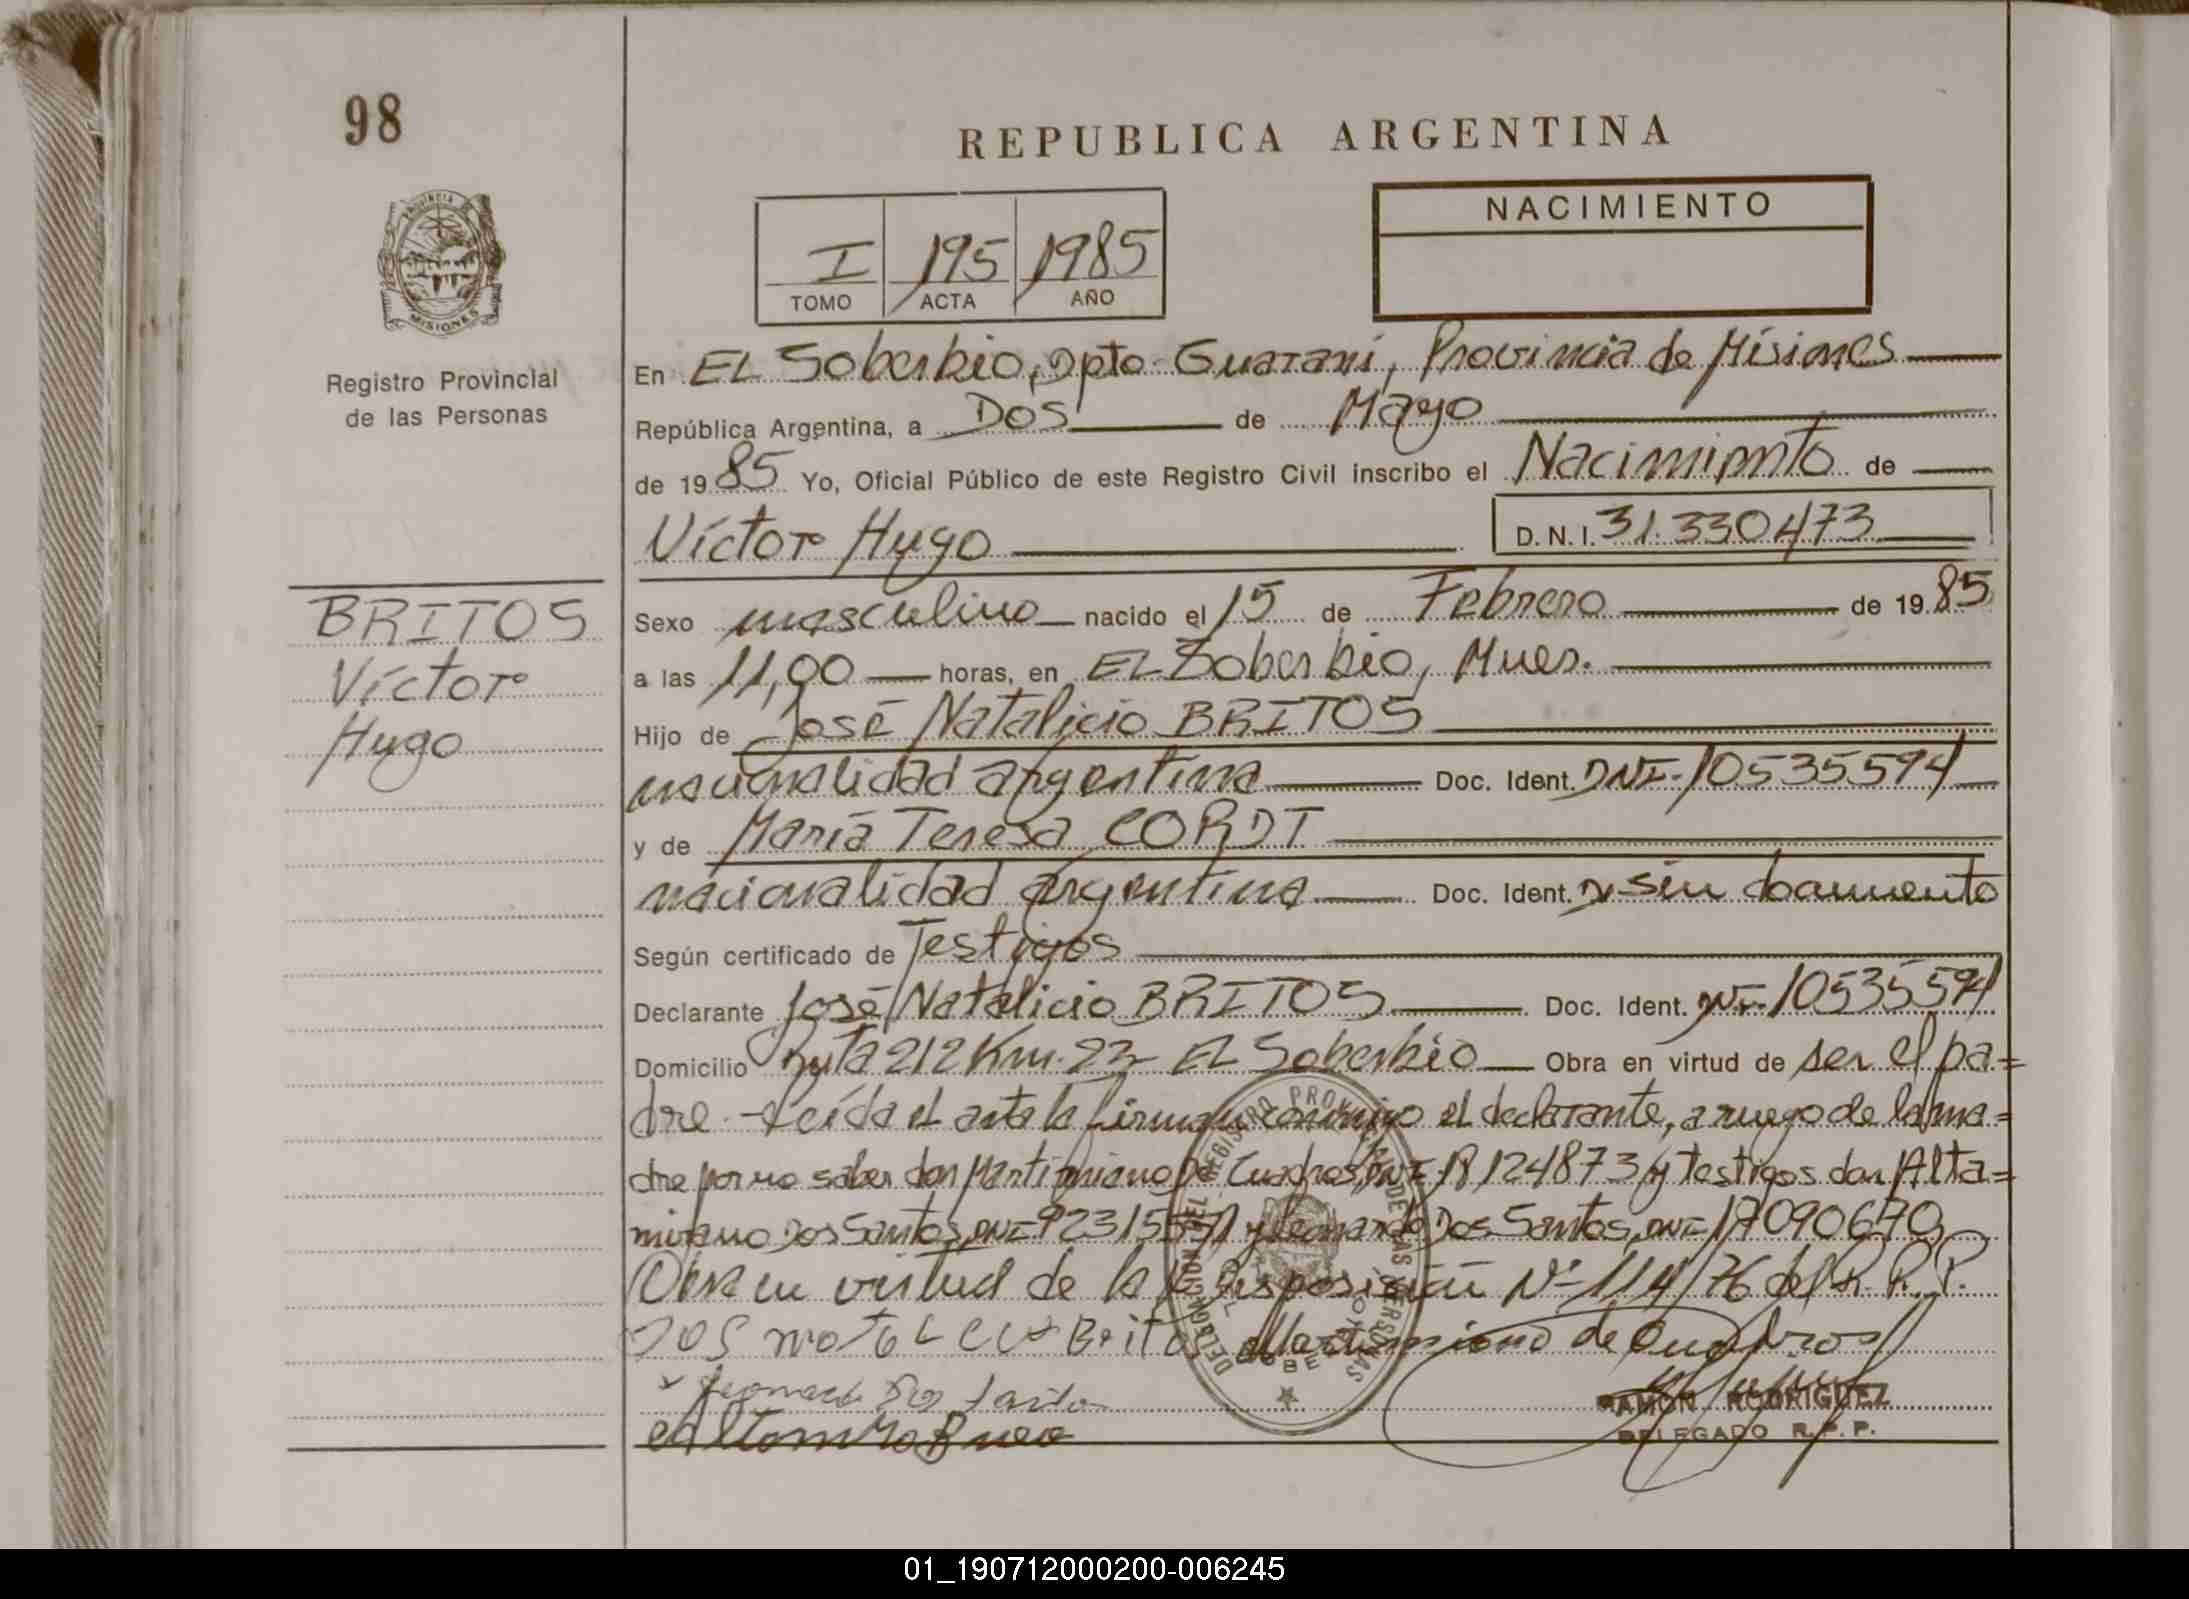 98
REPUBLICA ARGENTINA
PROVINCIA DE
MISIONES
Registro Provincial
de las Personas
I 195 1985
TOMO ACTA AÑO
NACIMIENTO
En EL Soberbio, Dpto. Guaraní, Provincia de Misiones
República Argentina, a Dos de Mayo
de 1985 Yo, Oficial Público de este Registro Civil inscribo el Nacimiento de
Víctor Hugo D.N.I. 31.330473
BRITOS
Víctor
Hugo
Sexo masculino nacido el 15 de Febrero de 1985
a las 11,00 horas, en EL Soberbio, Mnes.
Hijo de José Natalicio BRITOS
nacionalidad argentina Doc. Ident. DNI-10535594
y de María Teresa CORDT
nacionalidad argentina Doc. Ident. sin documento
Según certificado de Testigos
Declarante José Natalicio BRITOS Doc. Ident. DNI-10535594
Domicilio Ruta 212 Km. 23 EL Soberbio Obra en virtud de ser el pa=
dre - Leída el acta la firman conmigo el declarante, a ruego de la ma=
dre por no saber don Martimiano De Cuadros, DNI-18124873 y testigos don Alta=
mirano Dos Santos, DNI- y Leonardo Dos Santos, DNI-17090670
Obra en virtud de la Disposición Nº 114/76 del R.P.P.
Britos Martimiano de Quadros
Leonardo Dos Santos
RAMON RODRIGUEZ
DELEGADO R.P.P.
01_190712000200-006245